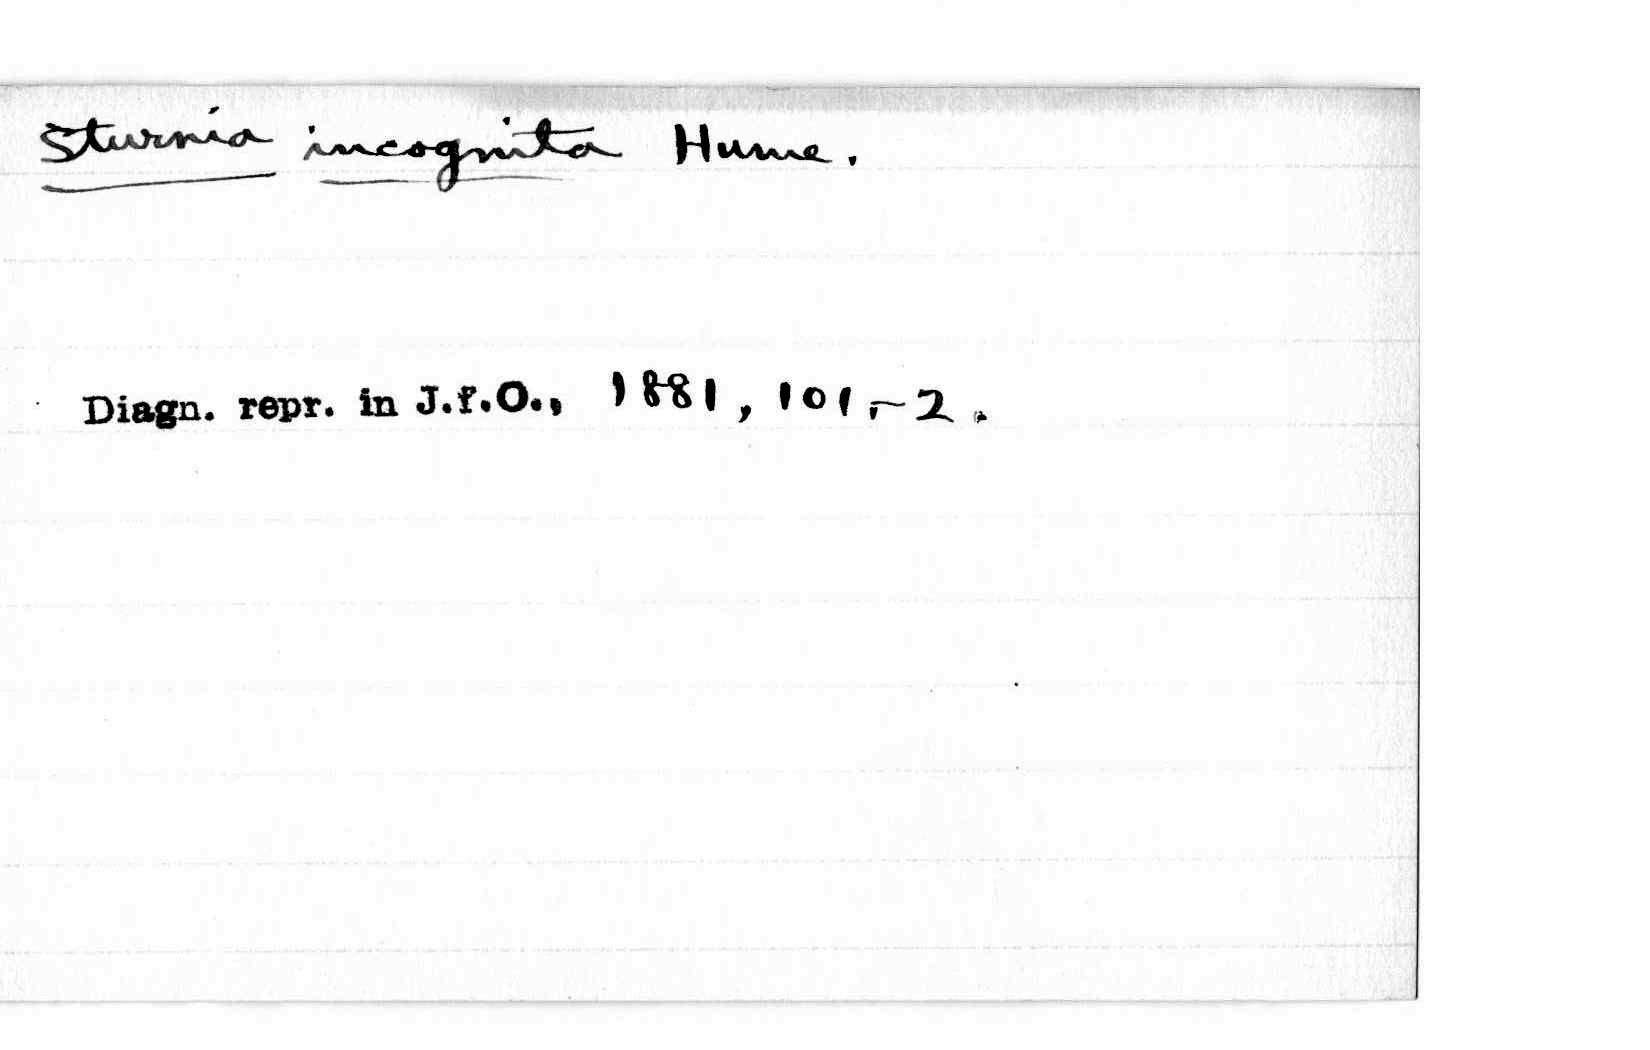 Sturnia incognita Hume.
Diagn. repr. in J.f.O., 1881, 101,-2.